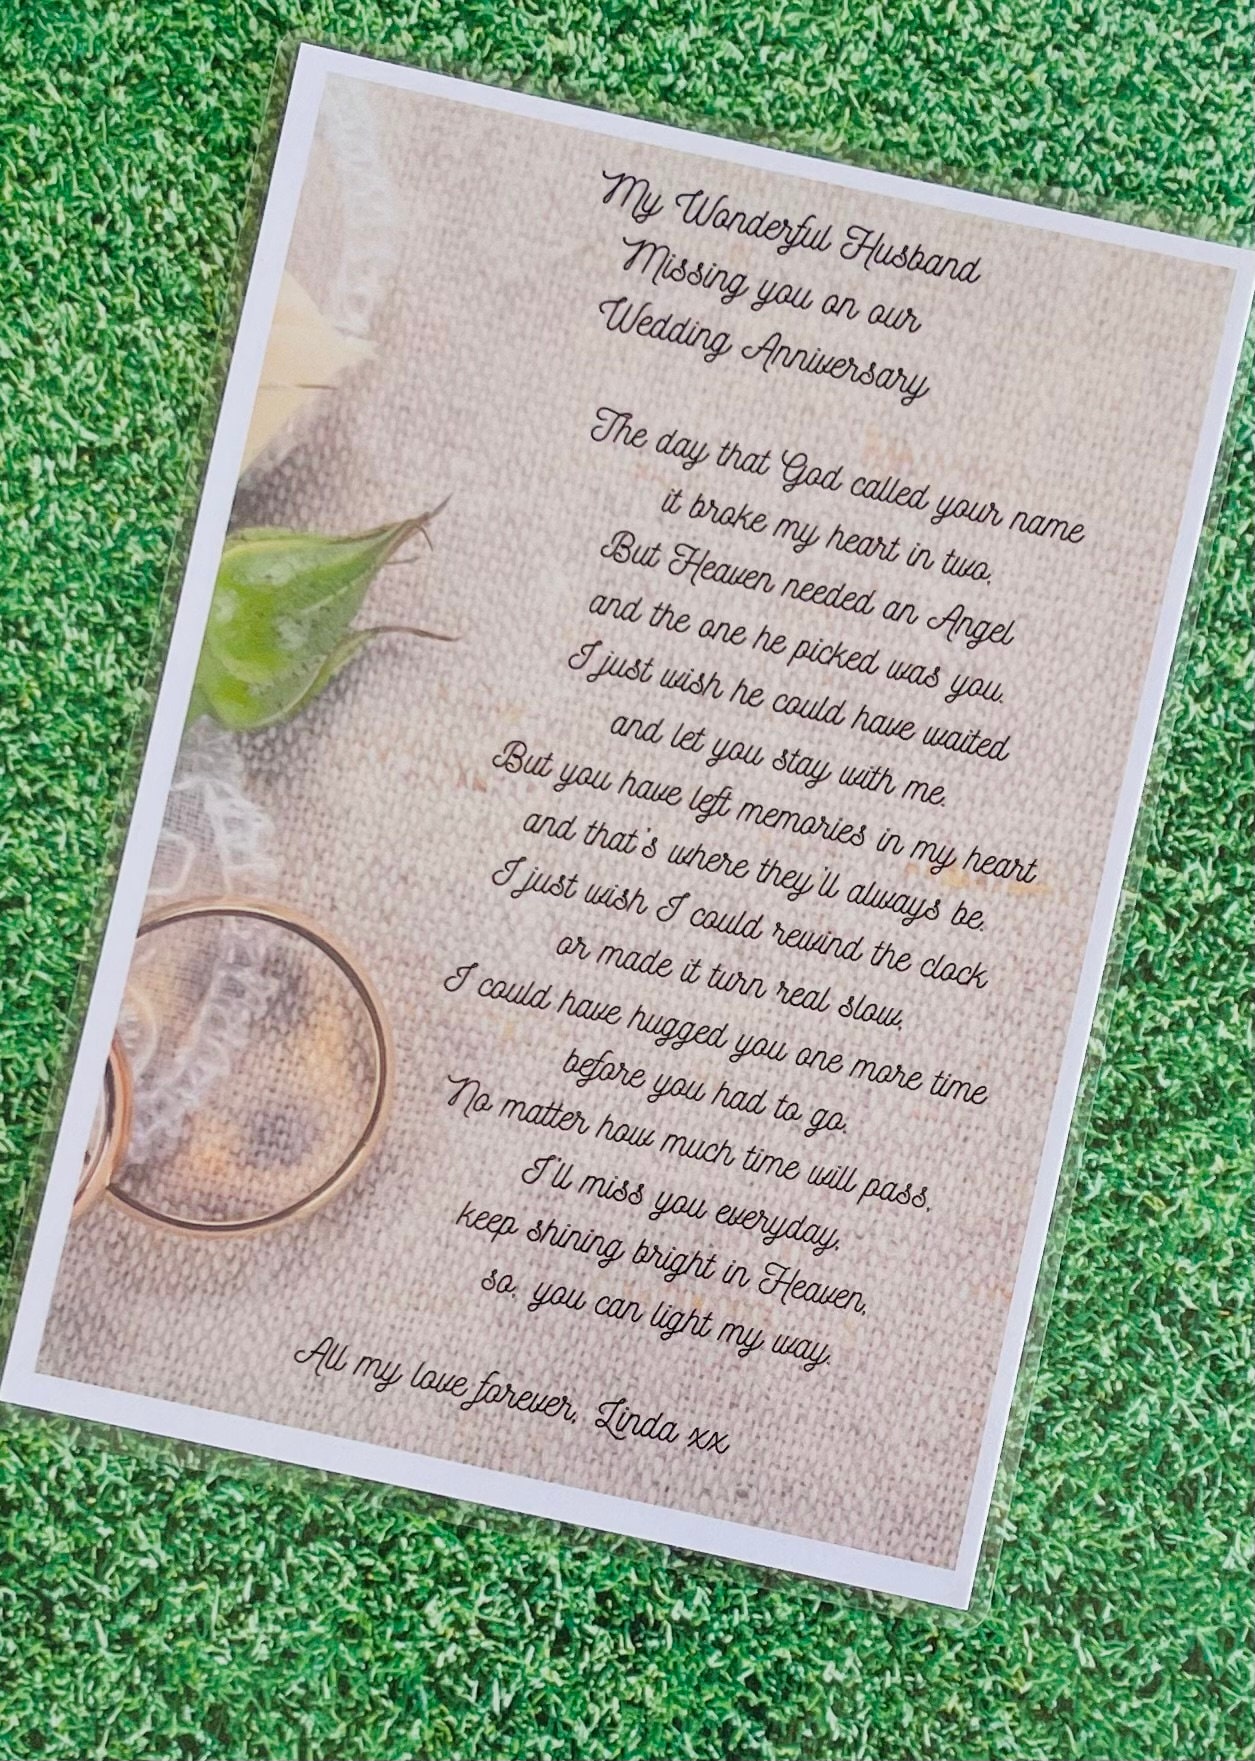 My Wonderful Husband
Missing you on our
Wedding Anniversary
The day that God called your name
it broke my heart in two,
But Heaven needed an Angel
and the one he picked was you.
I just wish he could have waited
and let you stay with me.
But you have left memories in my heart
and that's where they'll always be.
I just wish I could rewind the clock
or made it turn real slow,
I could have hugged you one more time
before you had to go.
No matter how much time will pass,
I'll miss you everyday,
keep shining bright in Heaven,
so, you can light my way.
All my love forever, Linda xx